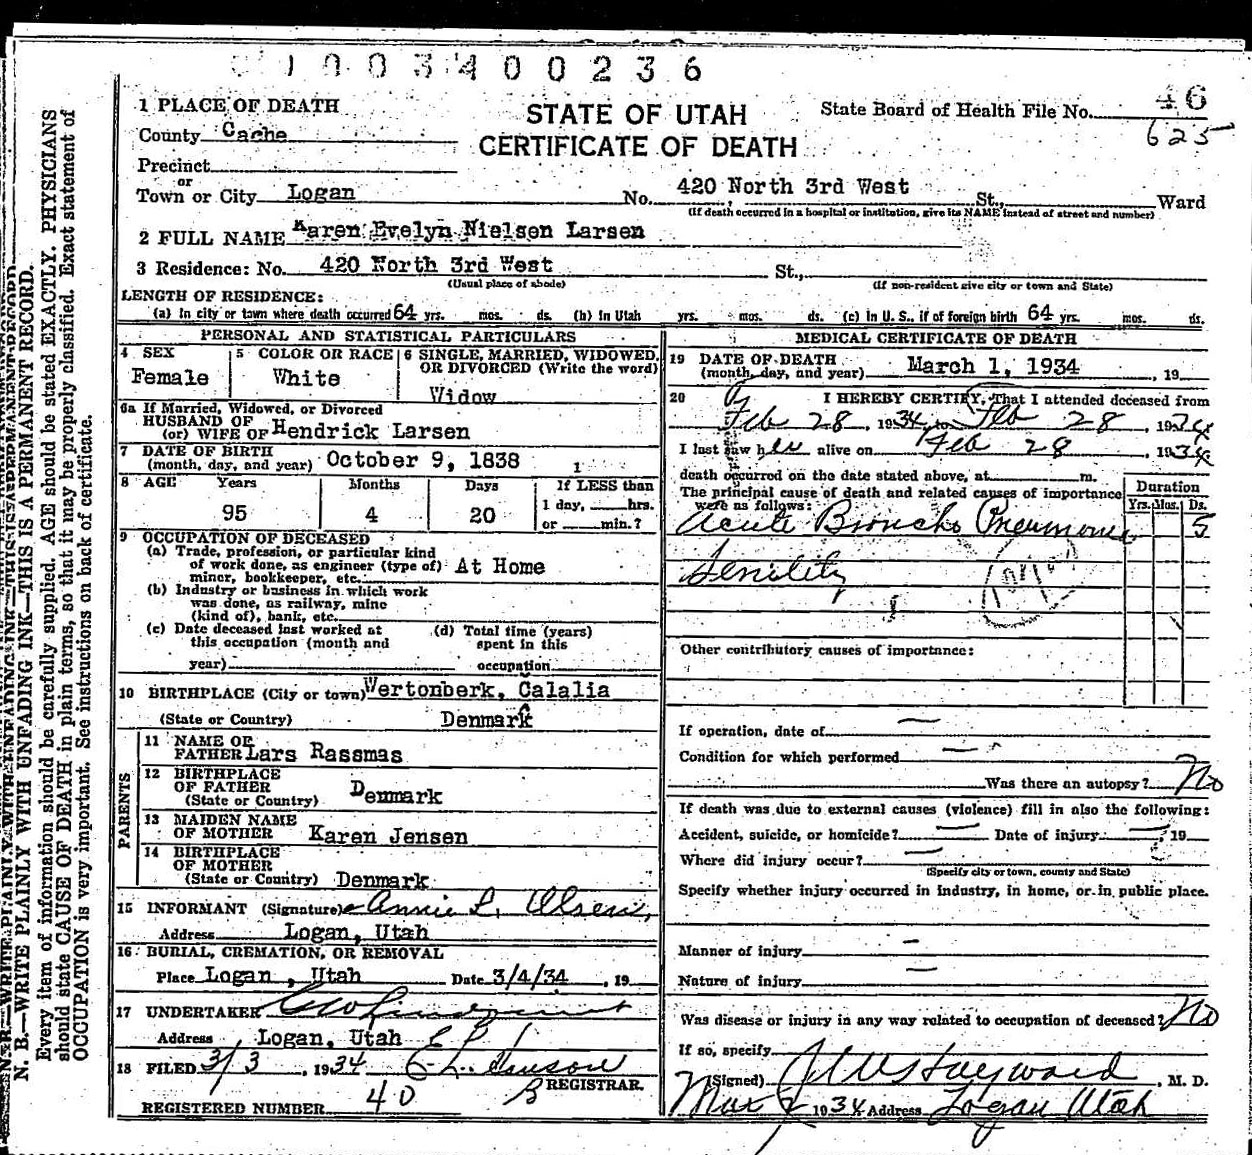 1003400236
1 PLACE OF DEATH
STATE OF UTAH
CERTIFICATE OF DEATH
State Board of Health File No. 46
625
County Cache
Precinct
or
Town or City Logan No. 420 North 3rd West St., Ward
(If death occurred in a hospital or institution, give its NAME instead of street and number)
2 FULL NAME Karen Evelyn Nielsen Larsen
3 Residence: No. 420 North 3rd West St.,
(Usual place of abode) (If non-resident give city or town and State)
LENGTH OF RESIDENCE:
(a) In city or town where death occurred 64 yrs. mos. ds. (b) In Utah yrs. mos. ds. (c) In U. S., if of foreign birth 64 yrs. mos. ds.
PERSONAL AND STATISTICAL PARTICULARS
4 SEX
Female
5 COLOR OR RACE
White
6 SINGLE, MARRIED, WIDOWED,
OR DIVORCED (Write the word)
Widow
6a If Married, Widowed, or Divorced
HUSBAND OF
(or) WIFE OF Hendrick Larsen
7 DATE OF BIRTH
(month, day, and year) October 9, 1838 1
8 AGE Years Months Days If LESS than
95 4 20 1 day, hrs.
or min.?
9 OCCUPATION OF DECEASED
(a) Trade, profession, or particular kind
of work done, as engineer (type of) At Home
miner, bookkeeper, etc.
(b) Industry or business in which work
was done, as railway, mine
(kind of), bank, etc.
(c) Date deceased last worked at (d) Total time (years)
this occupation (month and spent in this
year) occupation
10 BIRTHPLACE (City or town) Wertonberk, Calalia
(State or Country) Denmark
PARENTS
11 NAME OF
FATHER Lars Rassmas
12 BIRTHPLACE
OF FATHER
(State or Country) Denmark
13 MAIDEN NAME
OF MOTHER Karen Jensen
14 BIRTHPLACE
OF MOTHER
(State or Country) Denmark
15 INFORMANT (Signature) Annie L. Olsen,
Address Logan, Utah
16 BURIAL, CREMATION, OR REMOVAL
Place Logan, Utah Date 3/4/34, 19
17 UNDERTAKER
Address Logan, Utah
18 FILED 3/3, 1934
REGISTRAR.
REGISTERED NUMBER 40
MEDICAL CERTIFICATE OF DEATH
19 DATE OF DEATH
(month, day, and year) March 1, 1934, 19
20 I HEREBY CERTIFY, That I attended deceased from
Feb 28, 1934, to Feb 28, 1934
I last saw her alive on Feb 28, 1934
death occurred on the date stated above, at m.
The principal cause of death and related causes of importance
were as follows:
Duration
Yrs. Mos. Ds.
Acute Broncho Pneumonia 5
Senility
Other contributory causes of importance:
If operation, date of —
Condition for which performed —
Was there an autopsy? No
If death was due to external causes (violence) fill in also the following:
Accident, suicide, or homicide? — Date of injury — 19
Where did injury occur? —
(Specify city or town, county and State)
Specify whether injury occurred in industry, in home, or in public place.
Manner of injury —
Nature of injury —
Was disease or injury in any way related to occupation of deceased? No
If so, specify
(Signed) Hayward, M. D.
Mar 1934 Address Logan Utah
N. B.—WRITE PLAINLY WITH UNFADING INK—THIS IS A PERMANENT RECORD.
Every item of information should be carefully supplied. AGE should be stated EXACTLY. PHYSICIANS
should state CAUSE OF DEATH in plain terms, so that it may be properly classified. Exact statement of
OCCUPATION is very important. See instructions on back of certificate.